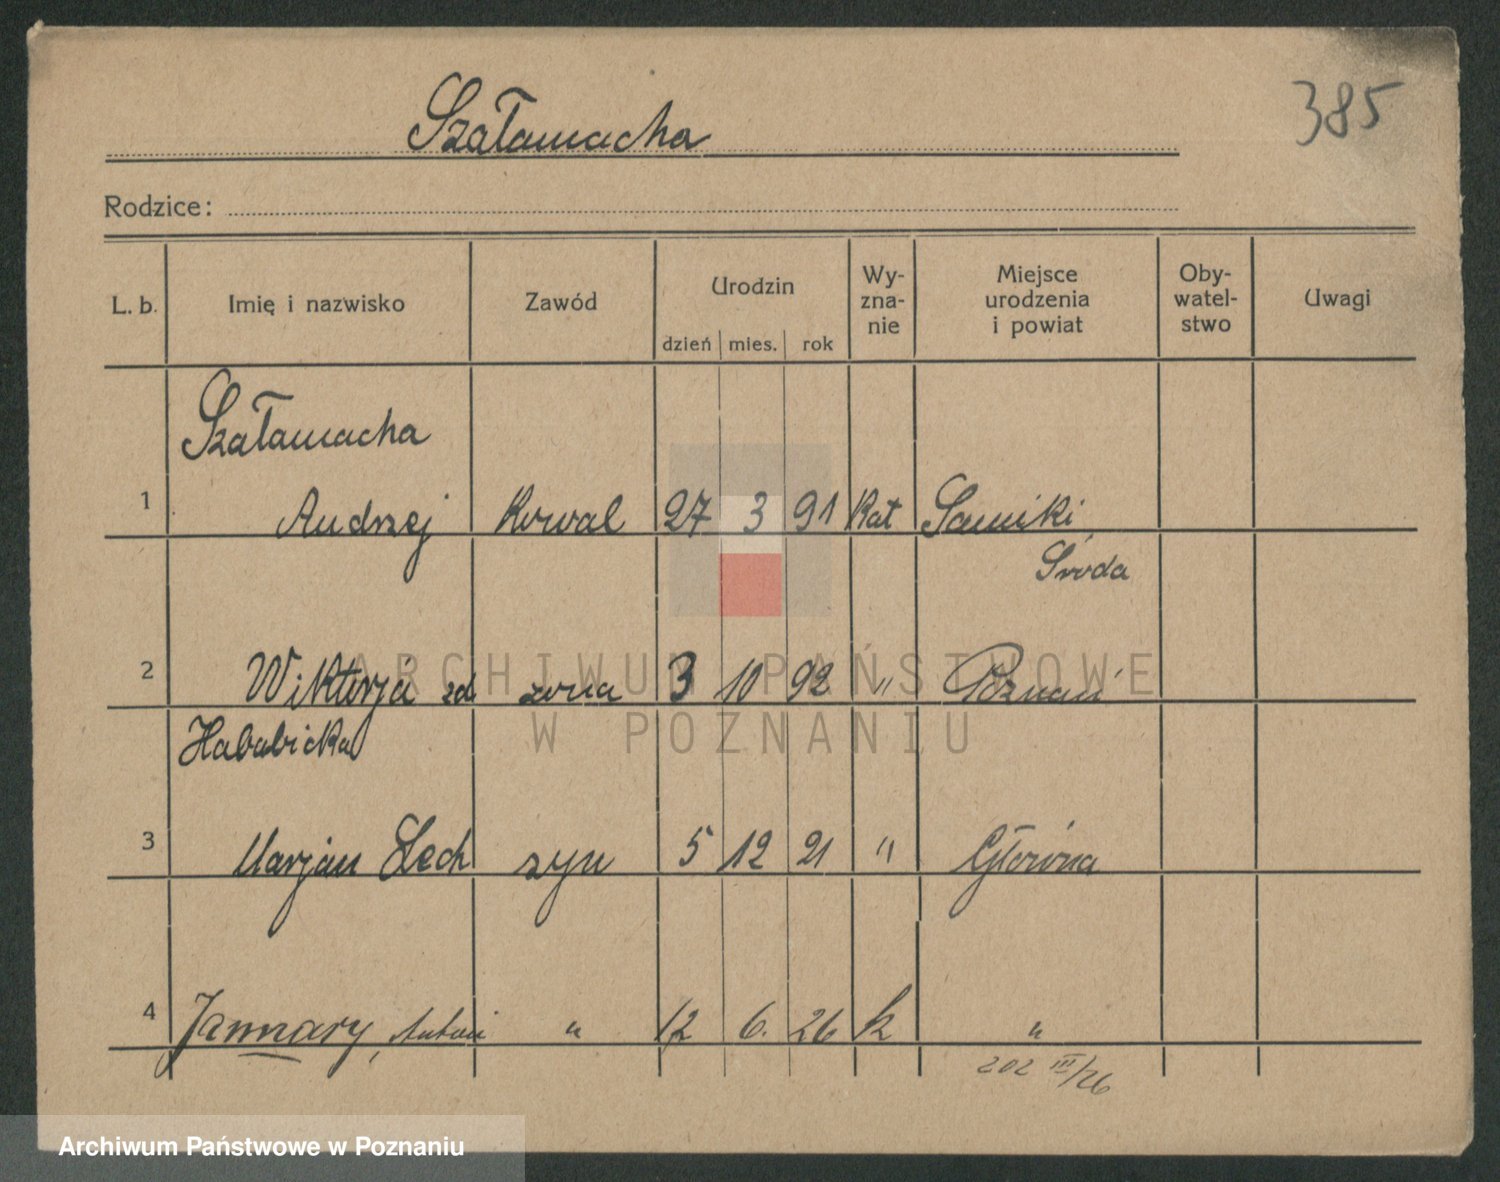 385
Szałamacha
Rodzice:
L. b. Imię i nazwisko Zawód Urodzin dzień mies. rok Wy-zna-nie Miejsce urodzenia i powiat Oby-watel-stwo Uwagi
Szałamacha
1 Andrzej Kowal 27 3 91 Kat Sanniki
Środa
2 Wiktorja zd żona 3 10 92 " Poznań
Hababicka
3 Marjan Lech syn 5 12 21 " Główna
4 Jannary, Antoni " 12 6. 26 k "
202 III/26
ARCHIWUM PAŃSTWOWE
W POZNANIU
Archiwum Państwowe w Poznaniu